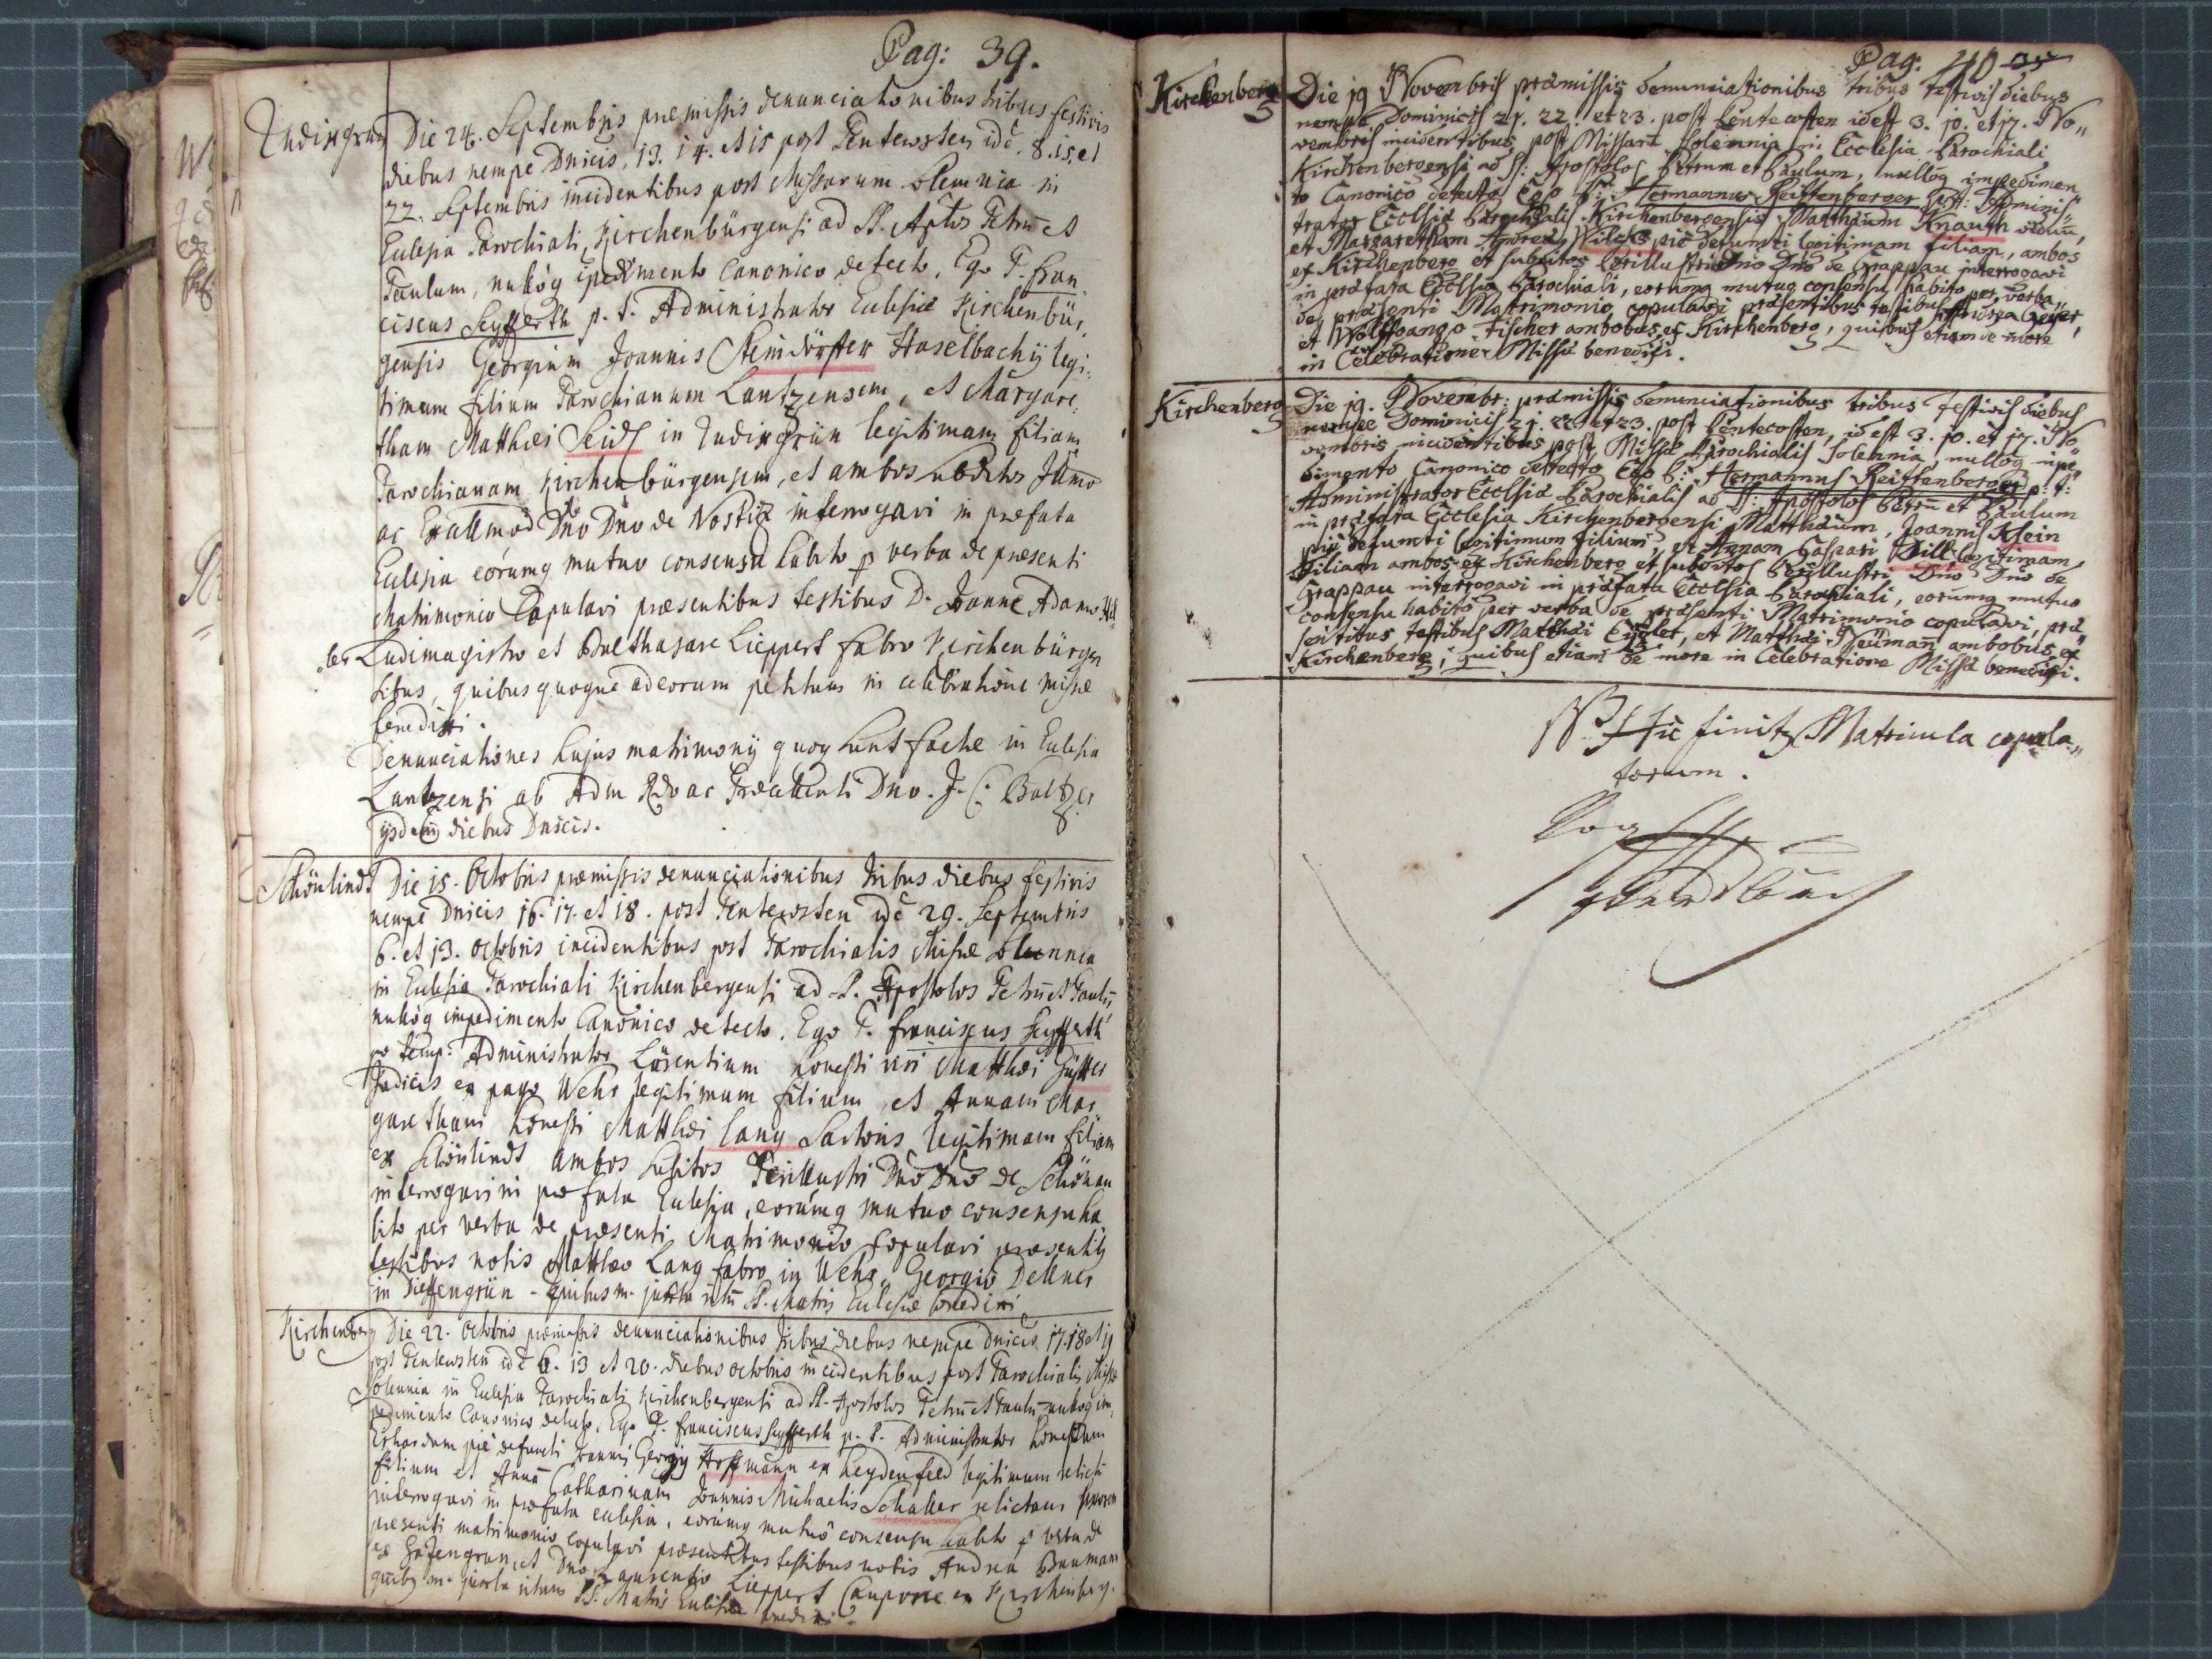 Pag: 39.
Rudisgrün Die 24. Septembris præmissis denunciationibus tribus festivis
diebus nempe Dnicis, 13. 14. et 15 post Pentecosten id ē 8. 15. et
22. Septembris incidentibus post Missarum solemnia in
Ecclesia Parochiali Kirchenbürgensi ad SS. Aptos Petrū et
Paulum, nullóq ipedimento Canonico detecto, Ego P. Fran
ciscus Seyfferth p. t. Administrator Ecclesiæ Kirchenbür,
gensis Georgium Joannis Steindörffer Haselbachÿ legi,
timum filium Parochianum Lantzensem, et Margare,
tham Matthæi Seidl in Rudisgrün legitimam filiam
Parochianam Kirchenbürgensem, et ambos subditos Illmo
ac Excellmo Dno Dno de Nostiz interrogavi in præfata
Ecclesia eorumq mutuo consensu habito p verba de præsenti
Matrimonio Copulavi præsentibus testibus D. Joanne Adamo
Ludimagistro et Balthasare Lieppert fabro Kirchenbürgen
sibus, quibus quoque ad eorum petitum in celebratione missæ
benedixi.
Denunciationes hujus matrimonÿ quoq sunt factæ in Ecclesia
Lantzensi ab Adm Rdo ac Præcellenti Dno. J. C. Baltzer
ÿsdem diebus Dnicis.
Schönlindt Die 15. Octobris præmissis denunciationibus tribus diebus festivis
nempe Dnicis 16. 17. et 18. post Pentecosten id ē 29. Septembris
6. et 13. Octobris incidentibus post Parochialis Missæ solemnia
in Ecclesia Parochiali Kirchenbergensi ad SS. Apostolos Petrū et Paulū,
nullóq impedimento Canonico detecto, Ego P. Franciscus Seyfferth
pro temp: Administrator Laurentium honesti viri Matthæi
Judicis ex pago Wehr legitimum filium, et Annam Mar
garetham honesti Matthæi Lang Sartoris legitimam filiam
ex Schönlindt ambos subditos Perillustri Dno Dno de Schönau
interrogavi in præfata Ecclesia, eorúmq mutuo consensu ha,
bito per verba de præsenti Matrimonio copulavi præsentibq
testibus notis Matthæo Lang fabro in Wehr, Georgio Dellner
in Dieffengrün - quibus m. juxta ritū S. Matris Ecclesiæ benedixi
Kirchenberg Die 22. Octobris præmissis denunciationibus tribus diebus nempe Dnicis 17. 18 et 19
post Pentecosten id ē 6. 13 et 20. diebus Octobris incidentibus post Parochialis Missæ
Solennia in Ecclesia Parochiali Kirchenbergensi ad SS. Apostolos Petrū et Paulū nullóq im,
pedimento Canonico detecto, Ego P. Franciscus Seyfferth p. t. Administrator honestum
Erhardum piè defuncti Joannis Georgÿ Hoffmann ex Heydenfeld legitimum relictū
filium et Annā Catharinam Joannis Michaelis Schaller relictam
interrogavi in præfata ecclesia, eorúmq mutuô consensu habito p verba de
præsenti matrimonio copulavi præsentibus testibus notis Andrea Baumann
et Dno Laurentio Lieppert Caupone ex Kirchenberg.
quibq m. juxta ritum SS. Matris Ecclesiæ benedixi.
Pag: 40
Kirchenberg Die 19 Novembris præmissis denunciationibus tribus festivis diebus
nempe Dominicis 21. 22. et 23. post Pentecosten id est 3. 10. et 17. No,,
vembris incidentibus post Missarū Solemnia in Ecclesia Parochiali
Kirchenbergensi ad SS: Apostolos Petrum et Paulum, nullóq impedimen
to Canonico detecto Ego P: Hermannus Reiffenberger Adminis,,
trator Ecclsiæ Parochialis Kirchenbergensis Matthæum Knauth viduū,
et Margaretham Andreæ piè defuncti legitimam filiam, ambos
ex Kirchenberg et subditos Perillustri Dno Dno de Grappau interrogavi
in præfata Ecclsia Parochiali, eorumq mutuo consensu habito per verba
de præsenti Matrimonio copulavi præsentibus testibus Geiser
et Wolffgango Fischer ambobus ex Kirchenberg, quibus etiam de more
in Celebratione Missæ benedixi.
Kirchenberg Die 19. Novembr: præmissis denunciationibus tribus festivis diebus
nempe Dominicis 21. 22 et 23. post Pentecosten, id est 3. 10. et 17. No,,
vembris incidentibus post Missæ Parochialis Solennia, nullóq inpe,,
dimento Canonico detecto Ego P: Hermannus Reiffenberger p: t:
Administrator Ecclsiæ Parochialis ad SS: Apostolos Petrū et Paulum
in præfata Ecclesia Kirchenbergensi Matthæum, Joannis Klein
piè defuncti legitimum filium, et Annam Caspari Dill legitimam
filiam ambos ex Kirchenberg et subditos Perillustri Dno Dno de
Grappau interrogavi in præfata Ecclsia Parochiali, eorumq mutuo
consensu habito per verba de præsenti Matrimonio copulavi, præ
sentibus testibus Matthæi et Matthæi Neümañ ambobus ex
Kirchenberg, quibus etiam de more in Celebratione Missæ benedixi.
Hic finitq Matricula copula,,
torum.